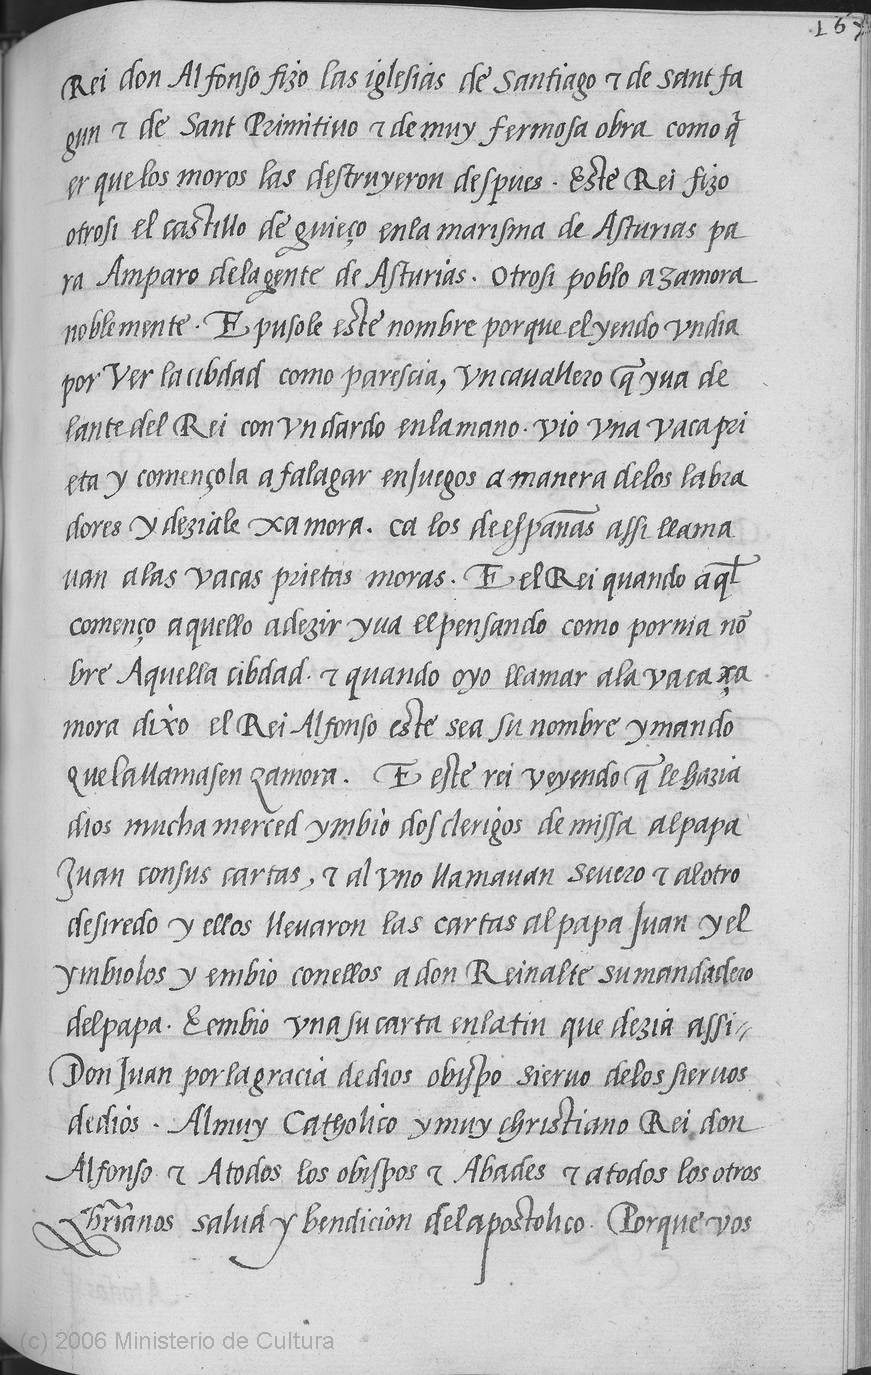 167
Rei don Alfonso fizo las iglesias de Santiago ⁊ de sant fa
gun ⁊ de Sant Primitiuo ⁊ de muy fermosa obra como q̃
er que los moros las destruyeron despues. Este Rei fizo
otrosi el castillo de guieço en la marisma de Asturias pa
ra Amparo de la gente de Asturias. Otrosi poblo a zamora
noblemente. E pusole este nombre porque el yendo vn dia
por Ver la cibdad como parescia, vn cauallero q̃ yua de
lante del Rei con vn dardo en la mano. vio vna vaca pri
eta y començola a falagar en juegos a manera de los labra
dores y deziale xamora. ca los de españas assi llama
uan a las vacas prietas moras. E el Rei quando aql̃
començo aquello a dezir yua el pensando como pornia nõ
bre Aquella cibdad. ⁊ quando oyo llamar a la vaca ça
mora dixo el Rei Alfonso este sea su nombre y mando
que la llamasen zamora. E este rei veyendo q̃ le hazia
dios mucha merced ymbio dos clerigos de missa al papa
Juan con sus cartas, ⁊ al vno llamauan Seuero ⁊ al otro
desiredo y ellos lleuaron las cartas al papa Juan y el
ymbiolos y embio con ellos a don Reinalte su mandadero
del papa. E embio vna su carta en latin que dezia assi
Don Juan por la gracia de dios obispo sieruo de los sieruos
de dios. Al muy Catholico y muy christiano Rei don
Alfonso ⁊ A todos los obispos ⁊ Abades ⁊ a todos los otros
xp̃rianos salud y bendicion del apostolico. Porque vos
(c) 2006 Ministerio de Cultura